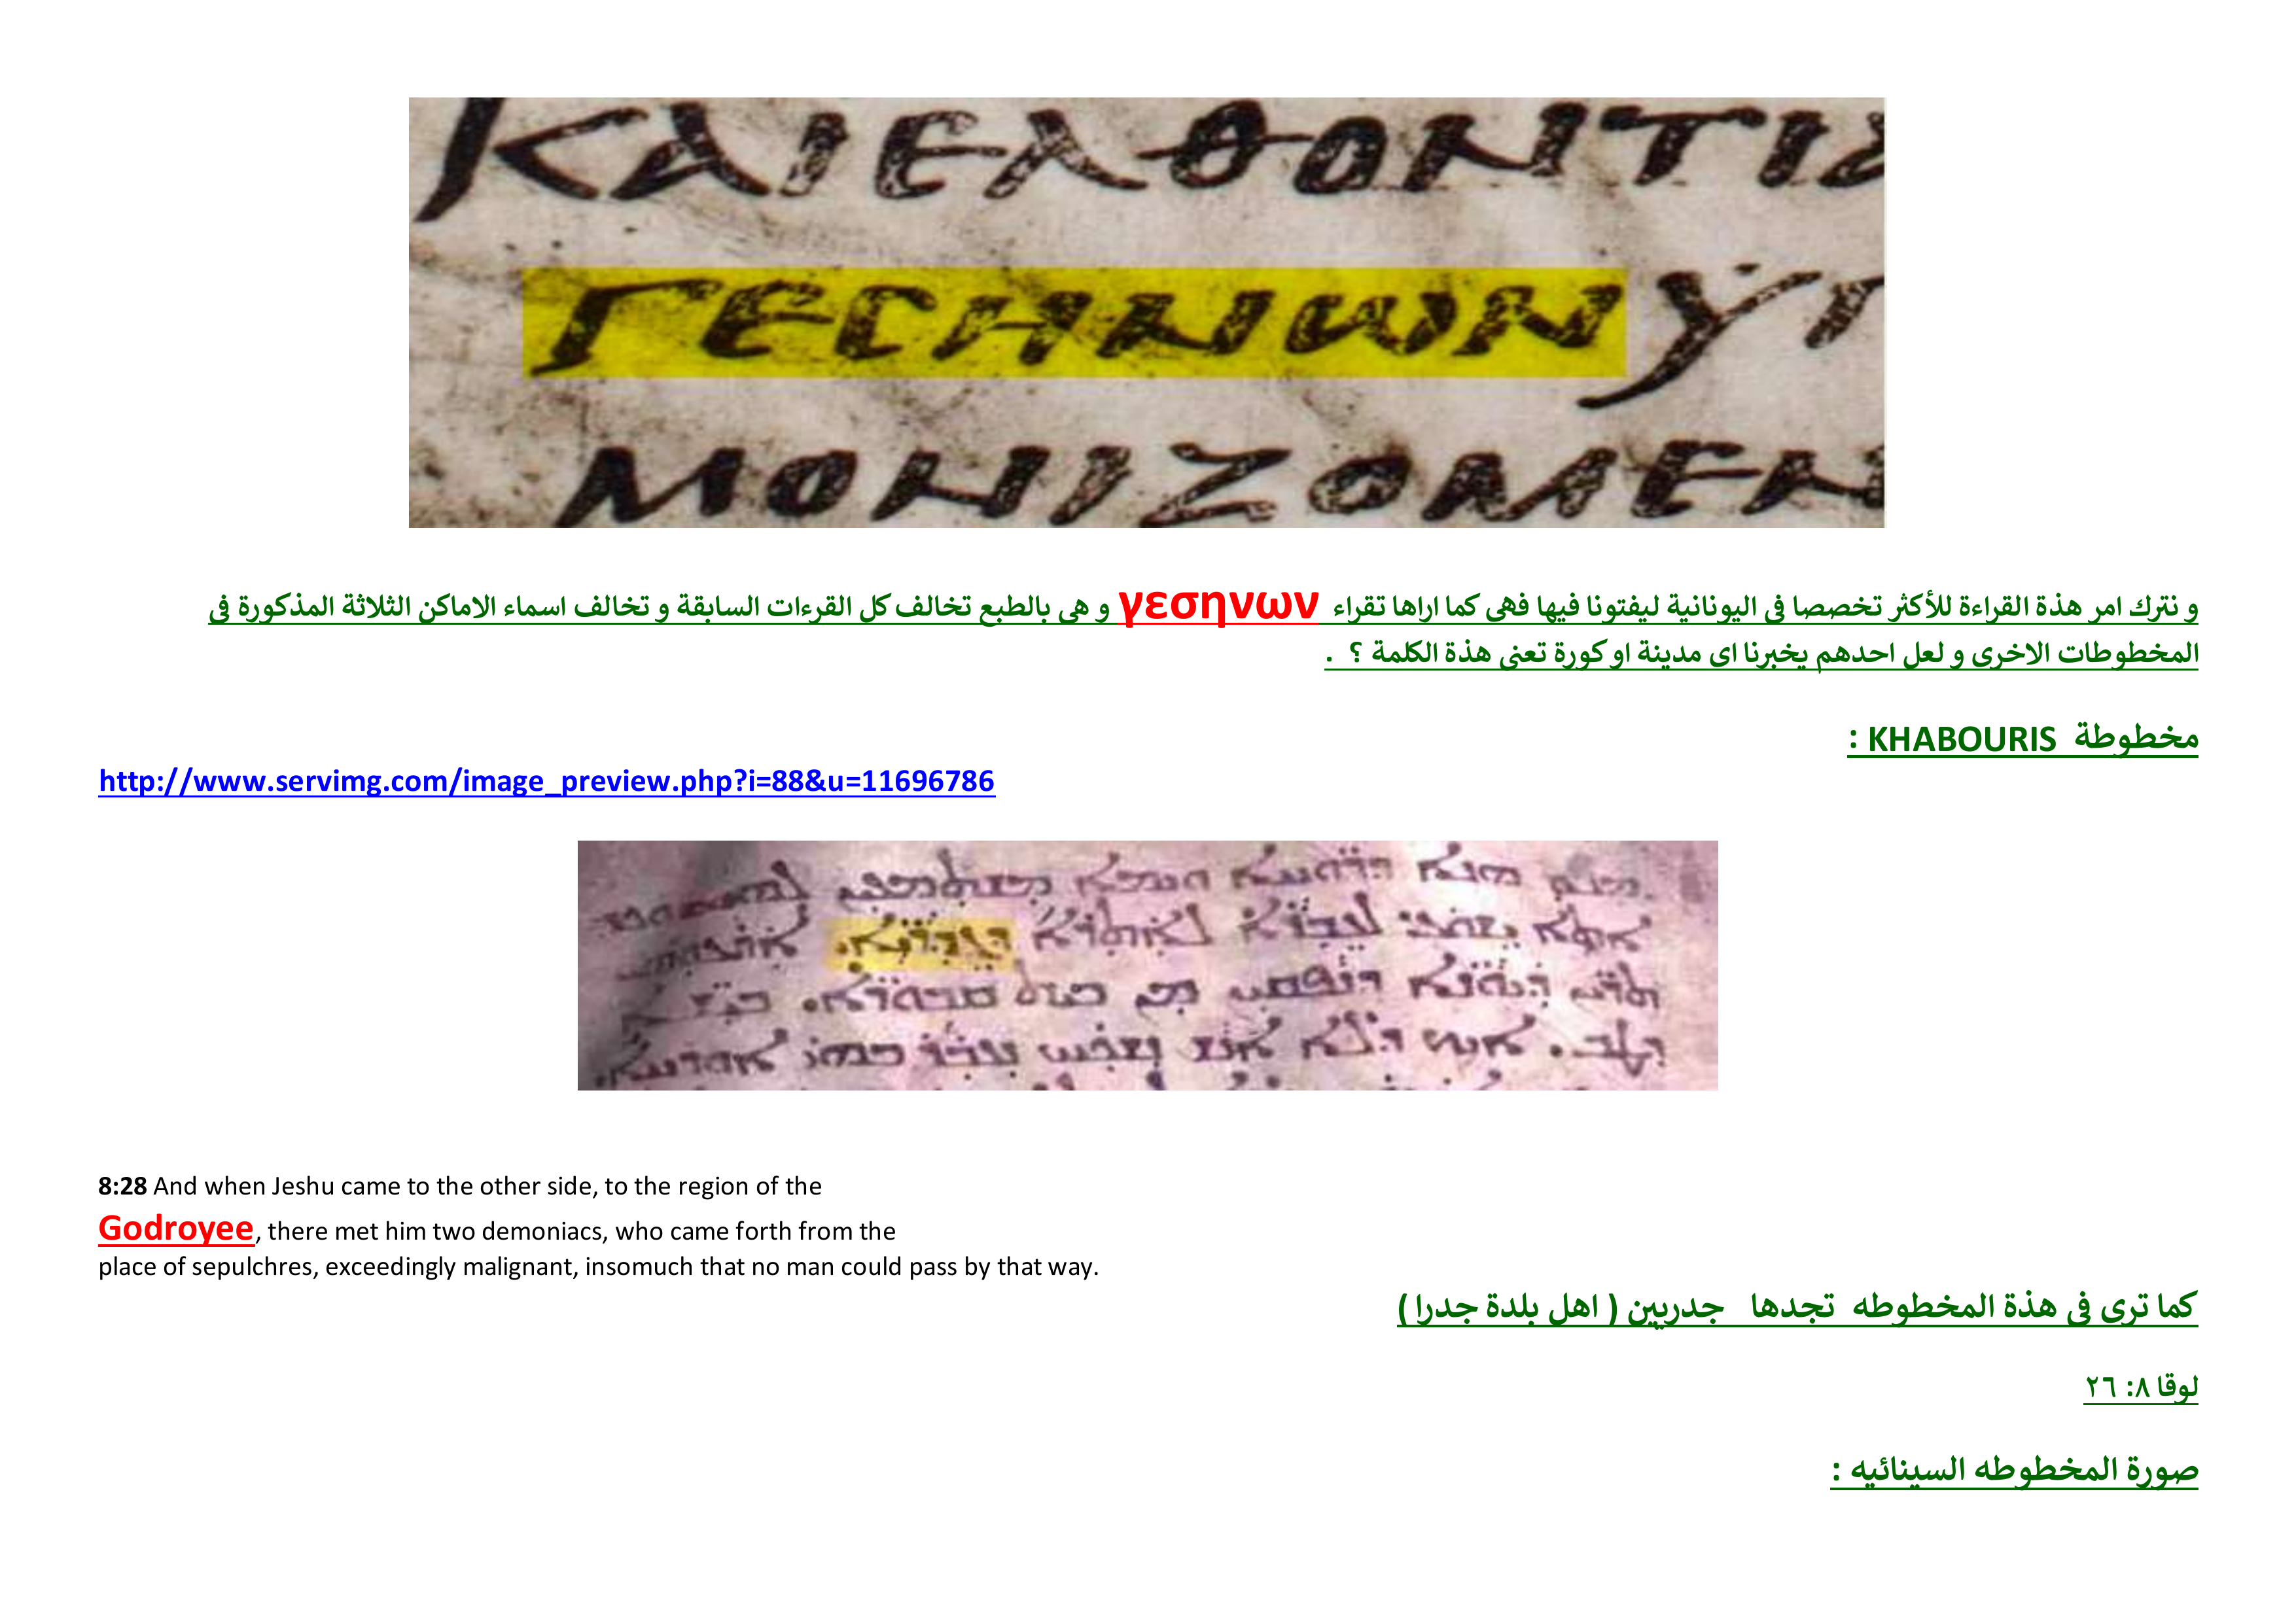 ΚΑΙ ΕΛΘΟΝΤΙ
ΓΕСΗΝωΝ ΥΠ
ΜΟΝΙΖΟΜΕΝ
و نترك امر هذة القراءة للأكثر تخصصا فى اليونانية ليفتونا فيها فهى كما اراها تقراء γεσηνων و هى بالطبع تخالف كل القرءات السابقة و تخالف اسماء الاماكن الثلاثة المذكورة فى
المخطوطات الاخرى و لعل احدهم يخبرنا اى مدينة او كورة تعنى هذة الكلمة ؟ .
مخطوطة KHABOURIS :
http://www.servimg.com/image_preview.php?i=88&u=11696786
8:28 And when Jeshu came to the other side, to the region of the
Godroyee, there met him two demoniacs, who came forth from the
place of sepulchres, exceedingly malignant, insomuch that no man could pass by that way.
كما ترى فى هذة المخطوطه تجدها جدريين ( اهل بلدة جدرا )
لوقا ٨: ٢٦
صورة المخطوطه السينائيه :